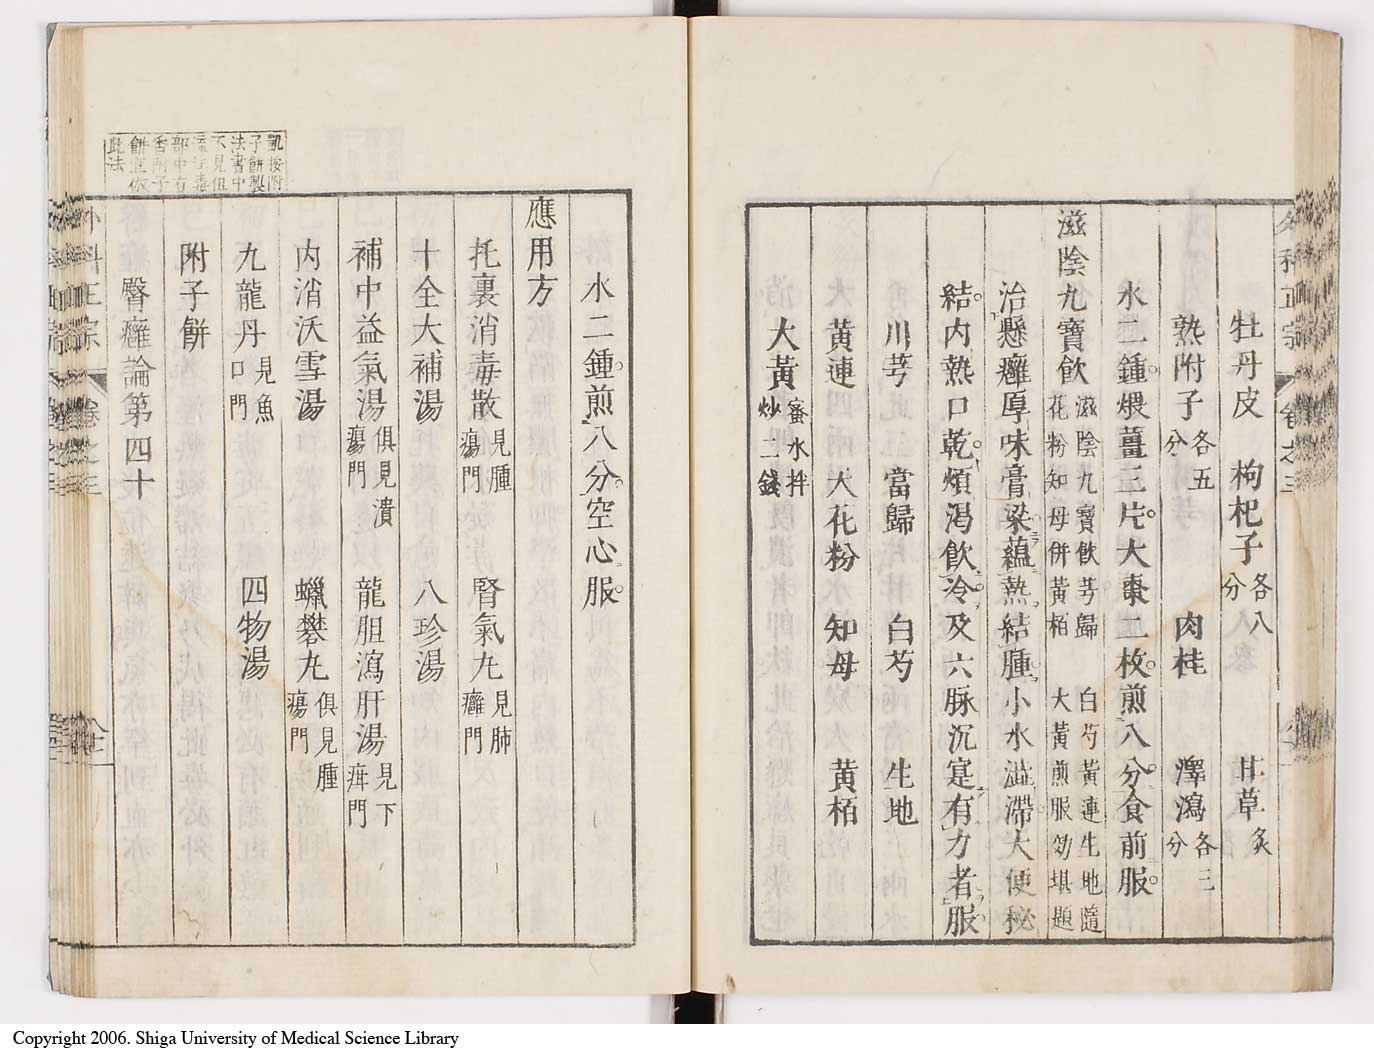 牡丹皮 枸杞子各八分 甘草炙
熟附子各五分 肉桂 澤瀉各三分
水二鍾煨薑三片大棗二枚煎八分食前服
滋陰九寶飲 滋陰九寶飲芎歸 白芍黃連生地隨
花粉知母併黃栢 大黃煎服効堪題
治懸癰厚味膏粱蘊熱結腫小水澁滯大便秘
結內熱口乾煩渴飲冷及六脉沉寔有力者服
川芎 當歸 白芍 生地
黃連 天花粉 知母 黃栢
大黃蜜水拌炒二錢
外科正宗 卷之三
水二鍾煎八分空心服
應用方
托裏消毒散見腫瘍門 腎氣丸見肺癰門
十全大補湯 八珍湯
補中益氣湯俱見潰瘍門 龍胆瀉肝湯見下疳門
內消沃雪湯 蠟礬丸俱見腫瘍門
九龍丹見魚口門 四物湯
附子餅
臀癰論第四十
外科正宗 卷之三
凱按附
子餅製
法書中
不見但
流注毒
部中有
香附子
餅宜依
此法
Copyright 2006. Shiga University of Medical Science Library